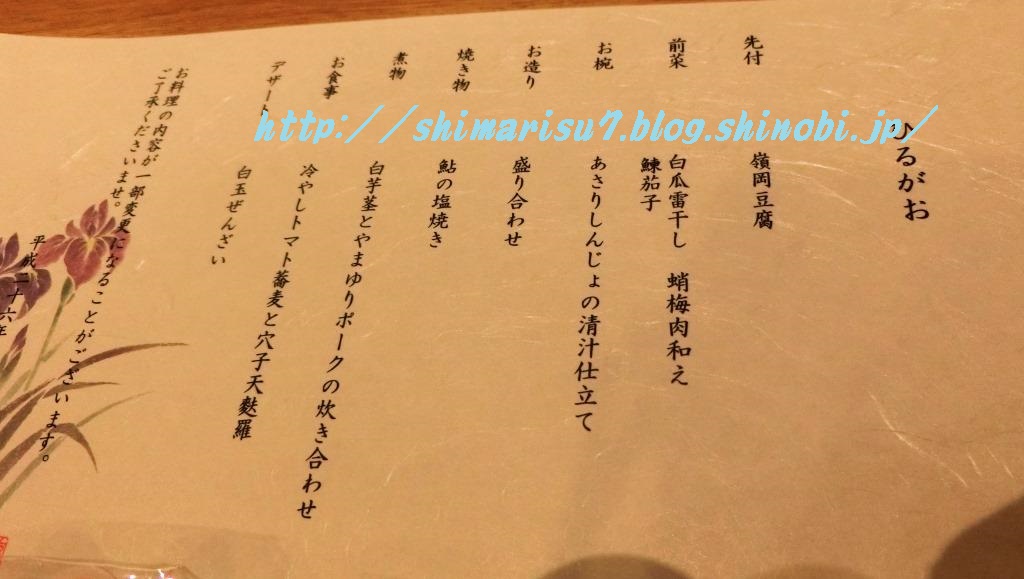 ひるがお
先付 嶺岡豆腐
前菜 白瓜雷干し 蛸梅肉和え
鰊茄子
お椀 あさりしんじょの清汁仕立て
お造り 盛り合わせ
焼き物 鮎の塩焼き
煮物 白芋茎とやまゆりポークの炊き合わせ
お食事 冷やしトマト蕎麦と穴子天麩羅
デザート 白玉ぜんざい
お料理の内容が一部変更になることがございます。
ご了承くださいませ。
平成二十六年
http://shimarisu7.blog.shinobi.jp/